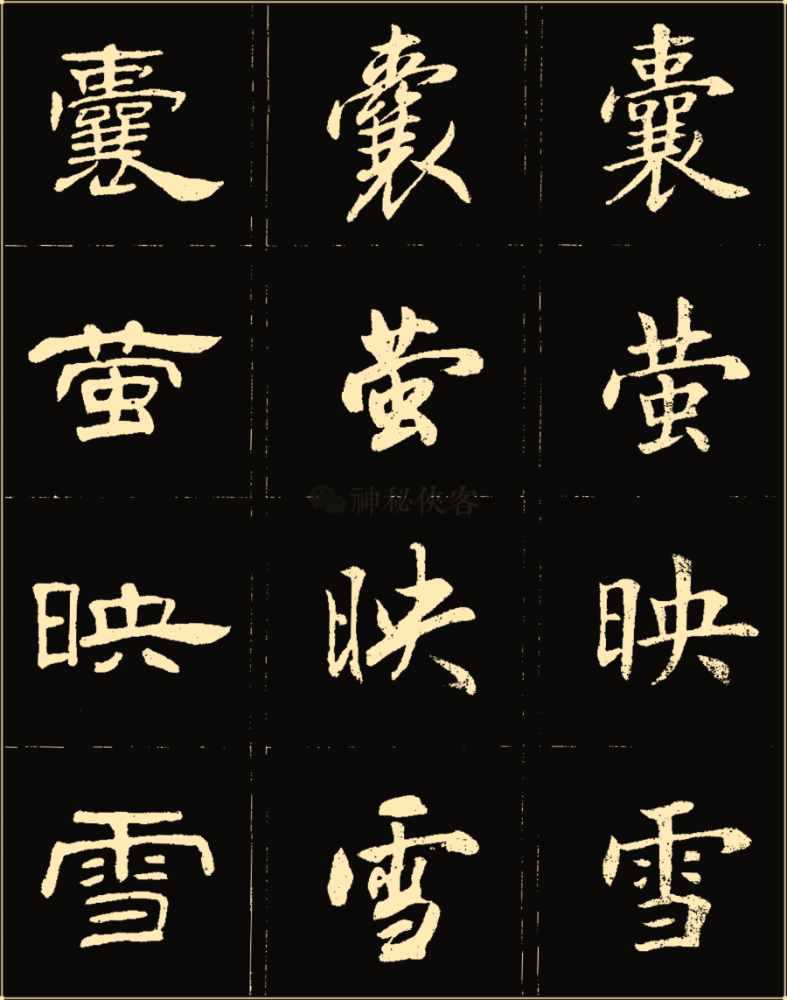 囊萤映雪
囊萤映雪
囊萤映雪
神秘俠客